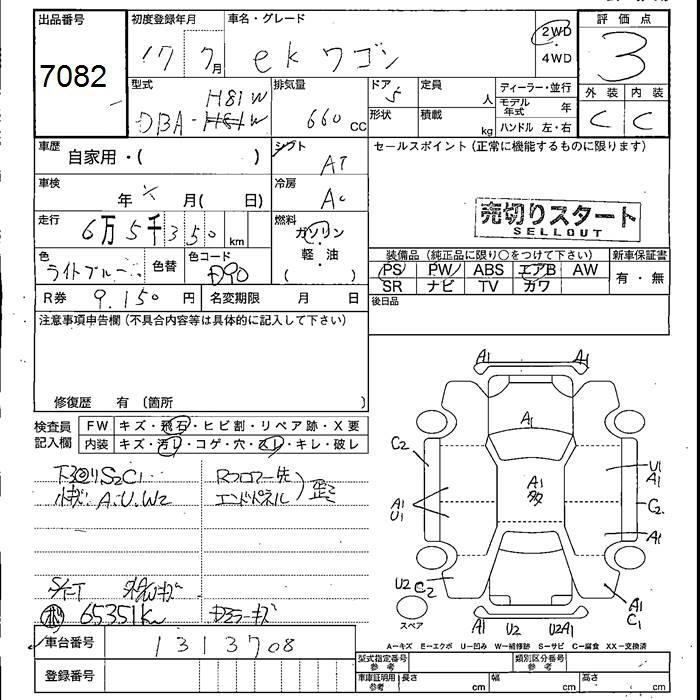 出品番号
7082
初度登録年月
17 7月
車名・グレード
ekワゴン
2WD
・
4WD
評価点
3
外装 内装
C C
型式
H81W
DBA-H81W
排気量
660 cc
ドア 5
形状
定員
人
積載
kg
ディーラー・並行
モデル年式 年
ハンドル 左・右
車歴
自家用・( )
シフト
AT
セールスポイント(正常に機能するものに限ります)
車検
年 月( 日)
冷房
AC
走行
6万5千350 km
燃料
ガソリン
・
軽・油
( )
売切りスタート
SELLOUT
色
ライトブルー
色替
色コード
D90
装備品(純正品に限り○をつけて下さい)
新車保証書
PS PW ABS エアB AW
SR ナビ TV カワ
有・無
R券 9.150 円
名変期限 月 日
後日品
注意事項申告欄(不具合内容等は具体的に記入して下さい)
修復歴 有(箇所 )
検査員記入欄
FW キズ・飛石・ヒビ割・リペア跡・X要
内装 キズ・汚レ・コゲ・穴・スレ・キレ・破レ
下廻りS2C1
小キズ A.U.W2
Rフロアー先
エンドパネル
歪ミ
65351km
車台番号
1313708
登録番号
A1 A1
A1
C2
A1
多
U1
A1
C2
A1
U1
A1
U2 C2
A1
C1
スペア
A1 U2 U2A1
A-キズ E-エクボ U-凹み W-補修跡 S-サビ C-腐食 XX-交換済
型式指定番号
参考
類別区分番号
参考
車庫証明用
参考
長さ cm
幅 cm
高さ cm